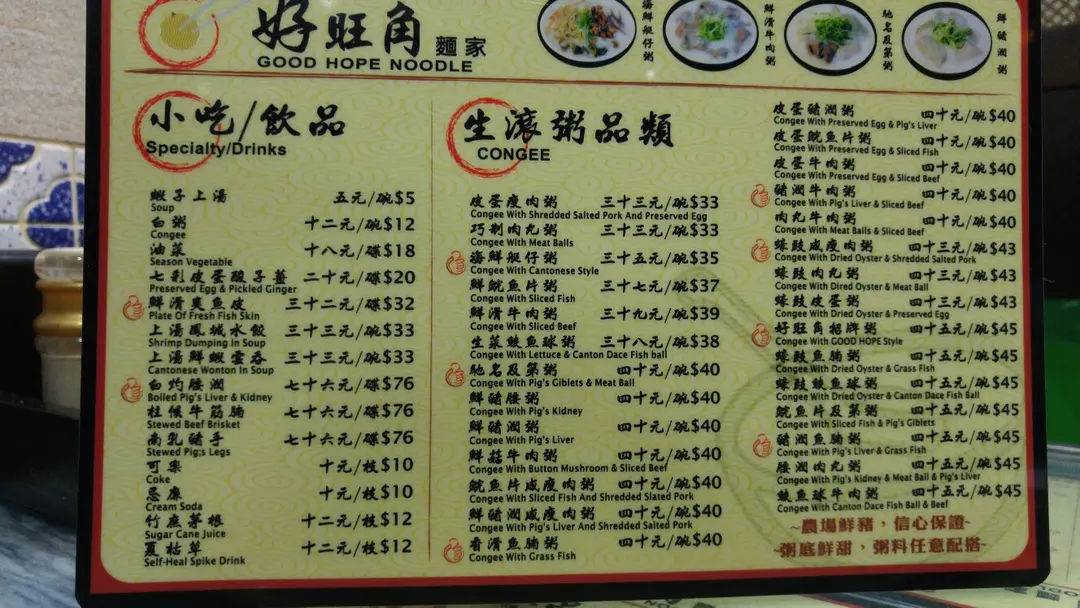 好旺角麵家
GOOD HOPE NOODLE
海鮮艇仔粥
鮮滑牛肉粥
馳名及第粥
鮮豬潤粥
小吃/飲品
Specialty/Drinks
蝦子上湯 五元/碗$5
Soup
白粥 十二元/碗$12
Congee
油菜 十八元/碟$18
Season Vegetable
七彩皮蛋酸子薑 二十元/碟$20
Preserved Egg & Pickled Ginger
鮮滑爽魚皮 三十二元/碟$32
Plate Of Fresh Fish Skin
上湯鳳城水餃 三十三元/碗$33
Shrimp Dumping In Soup
上湯鮮蝦雲吞 三十三元/碗$33
Cantonese Wonton In Soup
白灼腰潤 七十六元/碟$76
Boiled Pig's Liver & Kidney
柱候牛筋腩 七十六元/碟$76
Stewed Beef Brisket
南乳豬手 七十六元/碟$76
Stewed Pig;s Legs
可樂 十元/枝$10
Coke
忌廉 十元/枝$10
Cream Soda
竹蔗茅根 十二元/枝$12
Sugar Cane Juice
夏枯草 十二元/枝$12
Self-Heal Spike Drink
生滾粥品類
CONGEE
皮蛋瘦肉粥 三十三元/碗$33
Congee With Shredded Salted Pork And Preserved Egg
巧制肉丸粥 三十三元/碗$33
Congee With Meat Balls
海鮮艇仔粥 三十五元/碗$35
Congee With Cantonese Style
鮮鯇魚片粥 三十七元/碗$37
Congee With Sliced Fish
鮮滑牛肉粥 三十九元/碗$39
Congee With Sliced Beef
生菜鯪魚球粥 三十八元/碗$38
Congee With Lettuce & Canton Dace Fish ball
馳名及第粥 四十元/碗$40
Congee With Pig's Giblets & Meat Ball
鮮豬腰粥 四十元/碗$40
Congee With Pig's Kidney
鮮豬潤粥 四十元/碗$40
Congee With Pig's Liver
鮮菇牛肉粥 四十元/碗$40
Congee With Button Mushroom & Sliced Beef
鯇魚片咸瘦肉粥 四十元/碗$40
Congee With Sliced Fish And Shredded Slated Pork
鮮豬潤咸瘦肉粥 四十元/碗$40
Congee With Pig's Liver And Shredded Salted Pork
香滑魚腩粥 四十元/碗$40
Congee With Grass Fish
皮蛋豬潤粥 四十元/碗$40
Congee With Preserved Egg & Pig's Liver
皮蛋鯇魚片粥 四十元/碗$40
Congee With Preserved Egg & Sliced Fish
皮蛋牛肉粥 四十元/碗$40
Congee With Preserved Egg & Sliced Beef
豬潤牛肉粥 四十元/碗$40
Congee With Pig's Liver & Sliced Beef
肉丸牛肉粥 四十元/碗$40
Congee With Meat Balls & Sliced Beef
蠔豉咸瘦肉粥 四十三元/碗$43
Congee With Dried Oyster & Shredded Salted Pork
蠔豉肉丸粥 四十三元/碗$43
Congee With Dried Oyster & Meat Ball
蠔豉皮蛋粥 四十三元/碗$43
Congee With Dried Oyster & Preserved Egg
好旺角招牌粥 四十五元/碗$45
Congee With GOOD HOPE Style
蠔豉魚腩粥 四十五元/碗$45
Congee With Dried Oyster & Grass Fish
蠔豉鯪魚球粥 四十五元/碗$45
Congee With Dried Oyster & Canton Dace Fish Ball
鯇魚片及第粥 四十五元/碗$45
Congee With Sliced Fish & Pig's Giblets
豬潤魚腩粥 四十五元/碗$45
Congee With Pig's Liver & Grass Fish
腰潤肉丸粥 四十五元/碗$45
Congee With Pig's Kidney & Meat Ball & Pig's Liver
鯪魚球牛肉粥 四十五元/碗$45
Congee With Canton Dace Fish Ball & Beef
~農場鮮豬,信心保證~
~粥底鮮甜,粥料任意配搭~